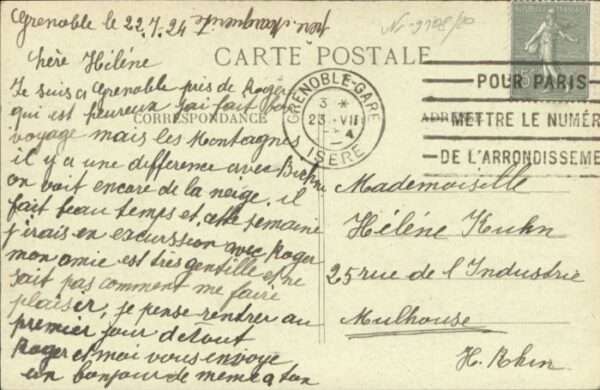 Grenoble le 22.7.24
CARTE POSTALE
chère Hélène
Je suis a Grenoble près de Roger
qui est heureux j'ai fait bon
voyage mais les Montagnes
il y a une différence avec
on voit encore de la neige, il
fait beau temps et cette semaine
j'irais en excurssion avec Roger
mon amie est très gentille et ne
sait pas comment me faire
plaiser, je pense rentrer au
premier jour d'etout
Roger et moi vous envoye
un bonjour de meme a ton
CORRESPONDANCE
GRENOBLE-GARE
3 *
23 VII
ISERE
POUR PARIS
METTRE LE NUMÉR
DE L'ARRONDISSEME
Mademoiselle
Hélène Kuhn
25 rue de l'Industrie
Mulhouse
H. Rhin